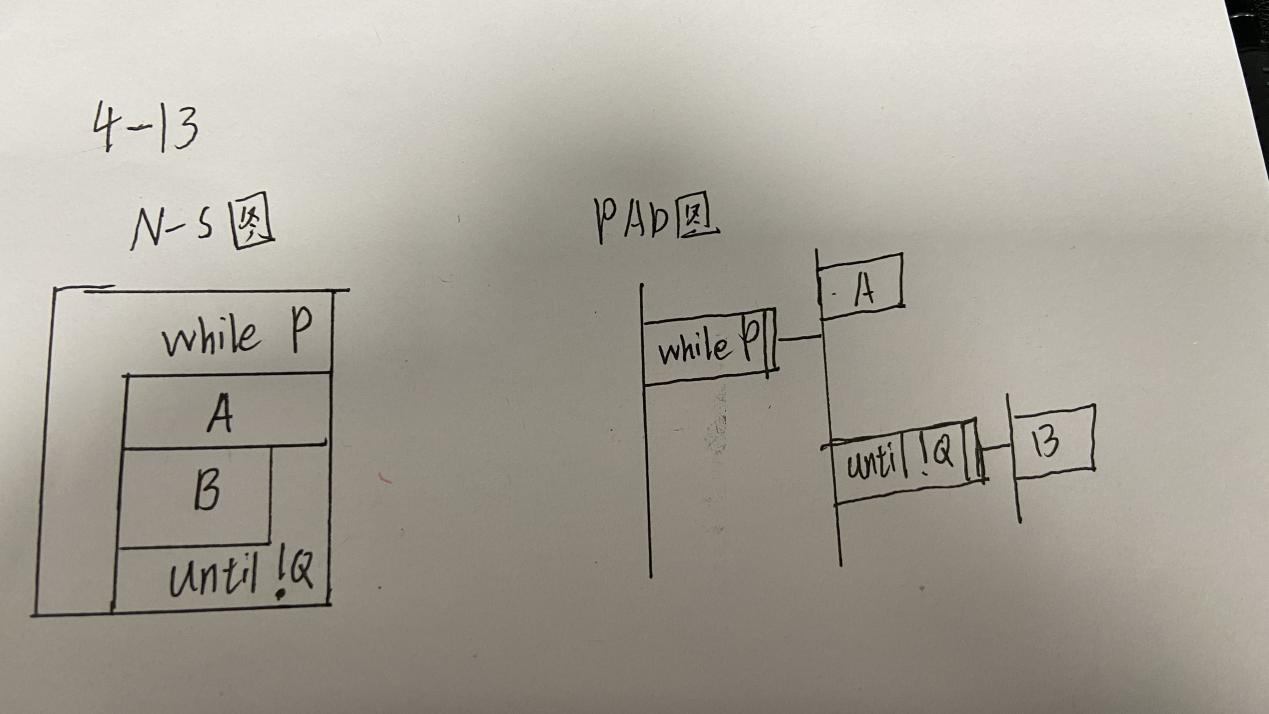 4-13
N-S图
while P
A
B
until !Q
PAD图
while P
A
until !Q
B